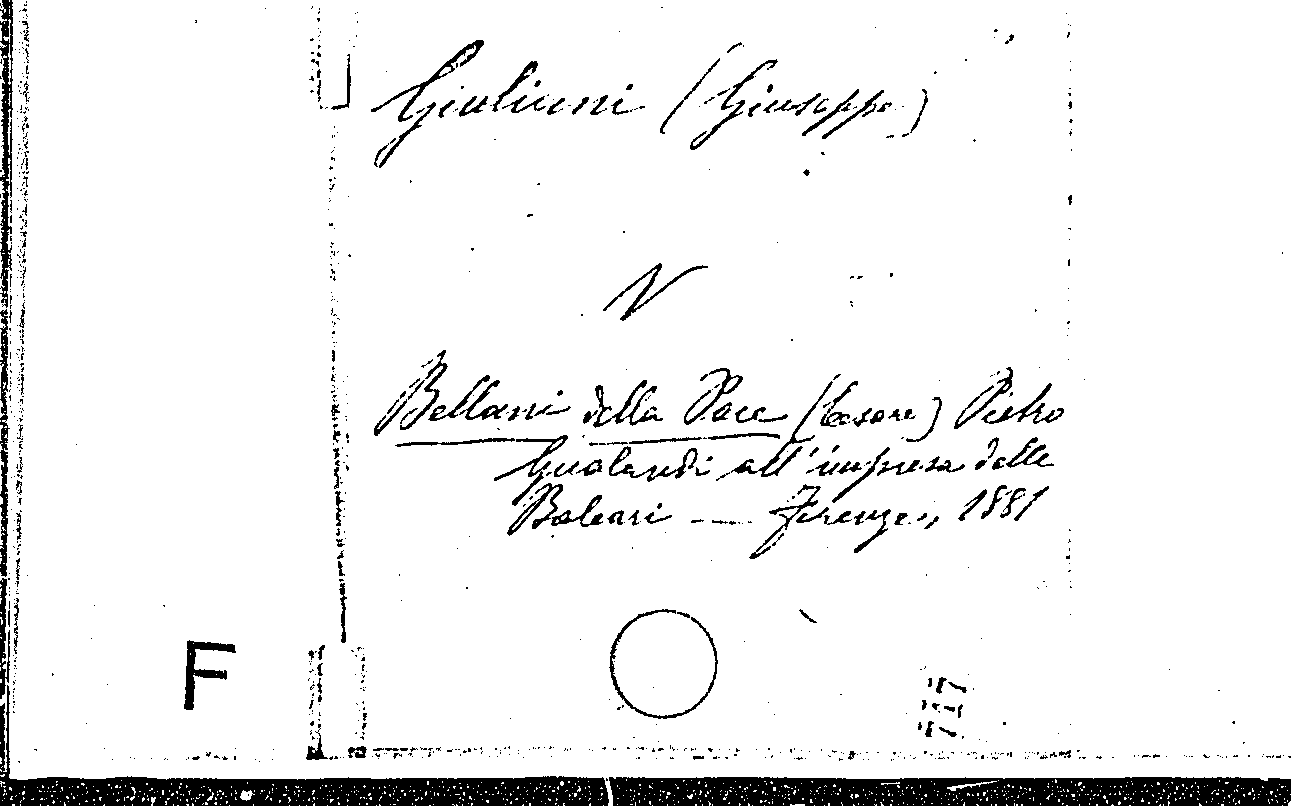 Giuliani (Giuseppe)
V
Bellani della Pace (Cesare) Pietro
Gualandi all'impresa delle
Baleari — Firenze, 1881
F
717